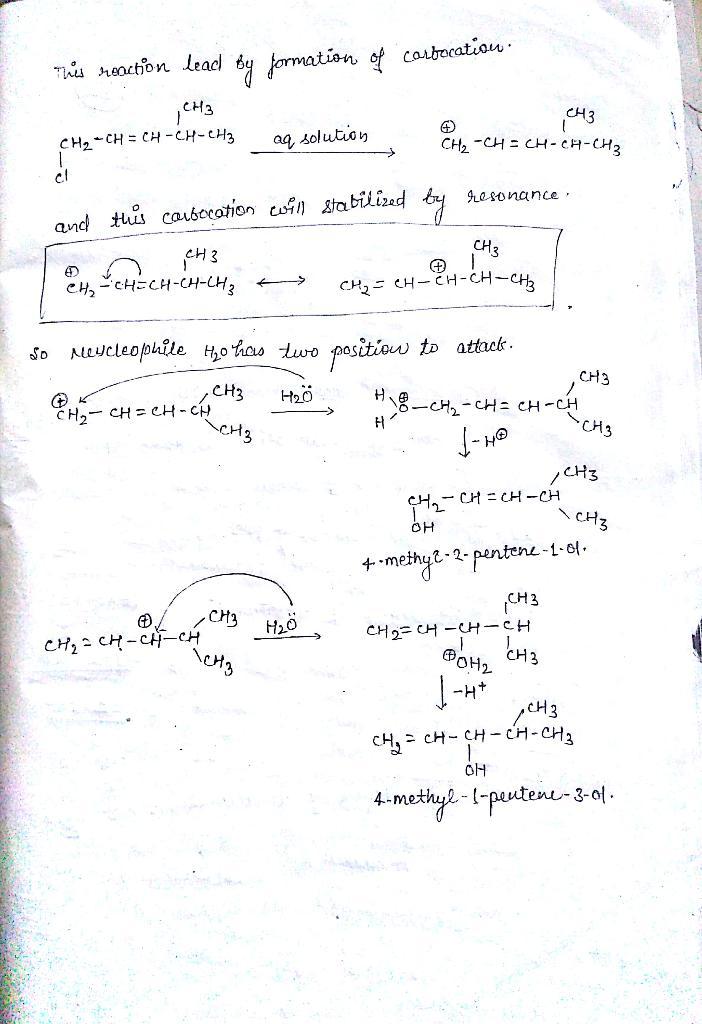 This reaction lead by formation of carbocation.
CH3
CH2-CH=CH-CH-CH3 aq solution ⊕CH2-CH=CH-CH-CH3
cl CH3
and this carbocation will stabilized by resonance.
CH3 CH3
⊕CH2-CH=CH-CH-CH3 ⟷ CH2=CH-⊕CH-CH-CH3
So Neucleophile H2O has two position to attack.
⊕CH2-CH=CH-CH CH3 CH3 H2Ö → H H ⊕O-CH2-CH=CH-CH CH3 CH3
↓-H⊕
CH2-CH=CH-CH CH3 CH3
OH
4-methyl-2-pentene-1-ol.
CH2=CH-⊕CH-CH CH3 CH3 H2Ö → CH2=CH-CH-CH CH3
⊕OH2 CH3
↓-H+
CH3
CH2=CH-CH-CH-CH3
OH
4-methyl-1-pentene-3-ol.